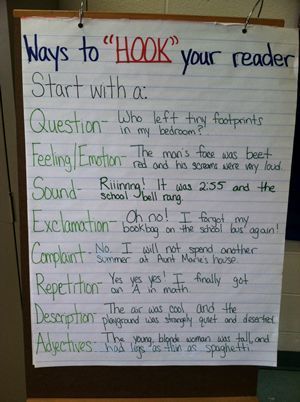 Ways to "HOOK" your reader
Start with a:
Question- Who left tiny footprints
in my bedroom?
Feeling/Emotion- The man's face was beet
red and his screams were very loud.
Sound- Riiinng! It was 2:55 and the
school bell rang.
Exclamation- Oh no! I forgot my
bookbag on the school bus again!
Complaint- No. I will not spend another
summer at Aunt Marie's house.
Repetition- Yes yes yes! I finally got
an A in math.
Description- The air was cool, and the
playground was strangely quiet and deserted.
Adjectives- The young, blonde woman was tall, and
had legs as thin as spaghetti.